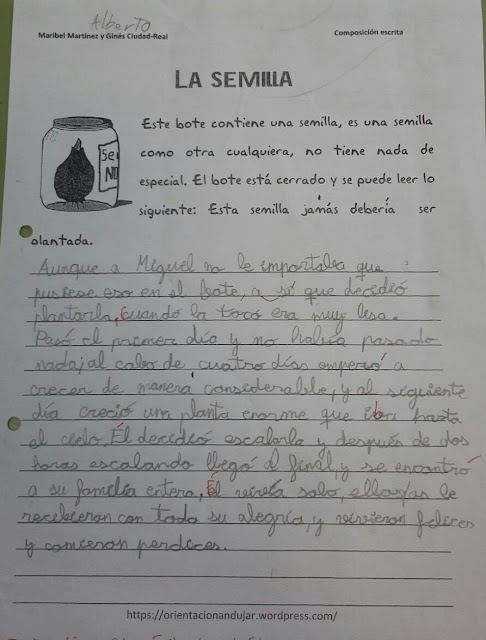 Alberto
Maribel Martínez y Ginés Ciudad-Real
Composición escrita
LA SEMILLA
Este bote contiene una semilla, es una semilla
como otra cualquiera, no tiene nada de
especial. El bote está cerrado y se puede leer lo
siguiente: Esta semilla jamás debería ser
plantada.
Se
NO
Aunque a Miguel no le importaba que
pusiese eso en el bote, a sí que decidió
plantarla, cuando la tocó era muy lisa.
Pasó el primer día y no había pasado
nada, al cabo de cuatro días empezó a
crecer de manera considerable, y al siguiente
día creció un planta enorme que iba hasta
el cielo. Él decidió escalarla y después de dos
horas escalando llegó al final, y se encontró
a su familia entera, Él vivía solo, ellos le
recibieron con toda su alegría, y vivieron felices
y comieron perdices.
https://orientacionandujar.wordpress.com/